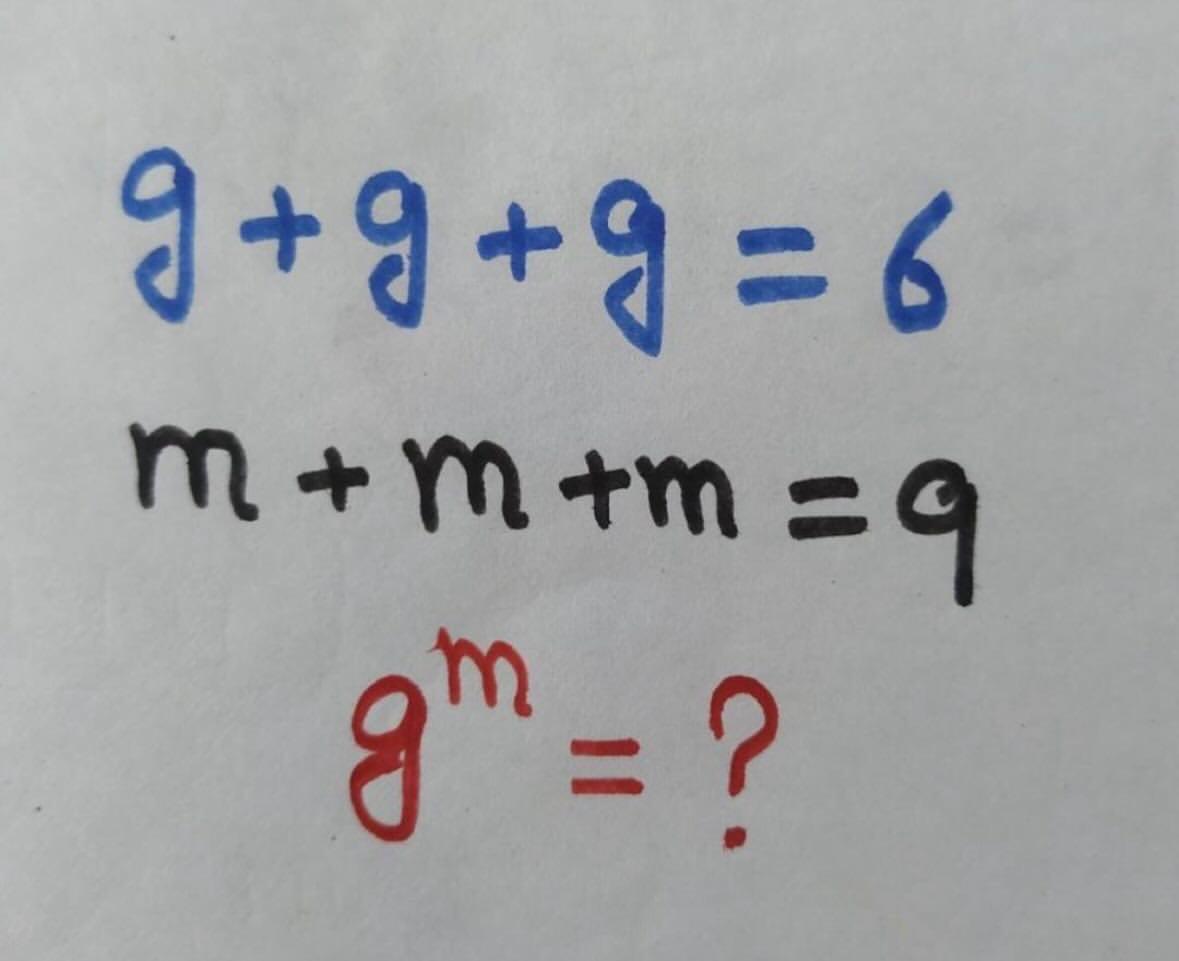 g + g + g = 6
m + m + m = 9
gᵐ = ?